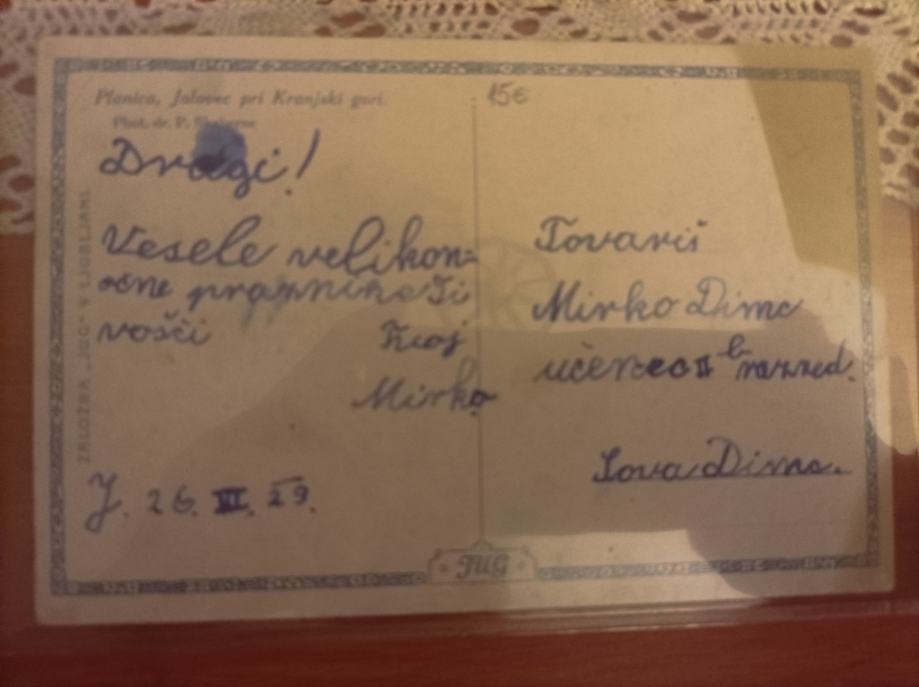 Planica, Jalovec pri Kranjski gori.
15€
Phot. dr. P.
Dragi!
Vesele velikon=
očne praznike Ti
vošči Tvoj
Mirko
J. 26. III. 29.
ZALOŽBA „JUG“ V LJUBLJANI
Tovariš
Mirko Dimc
učenec II b razred.
Dimc.
JUG